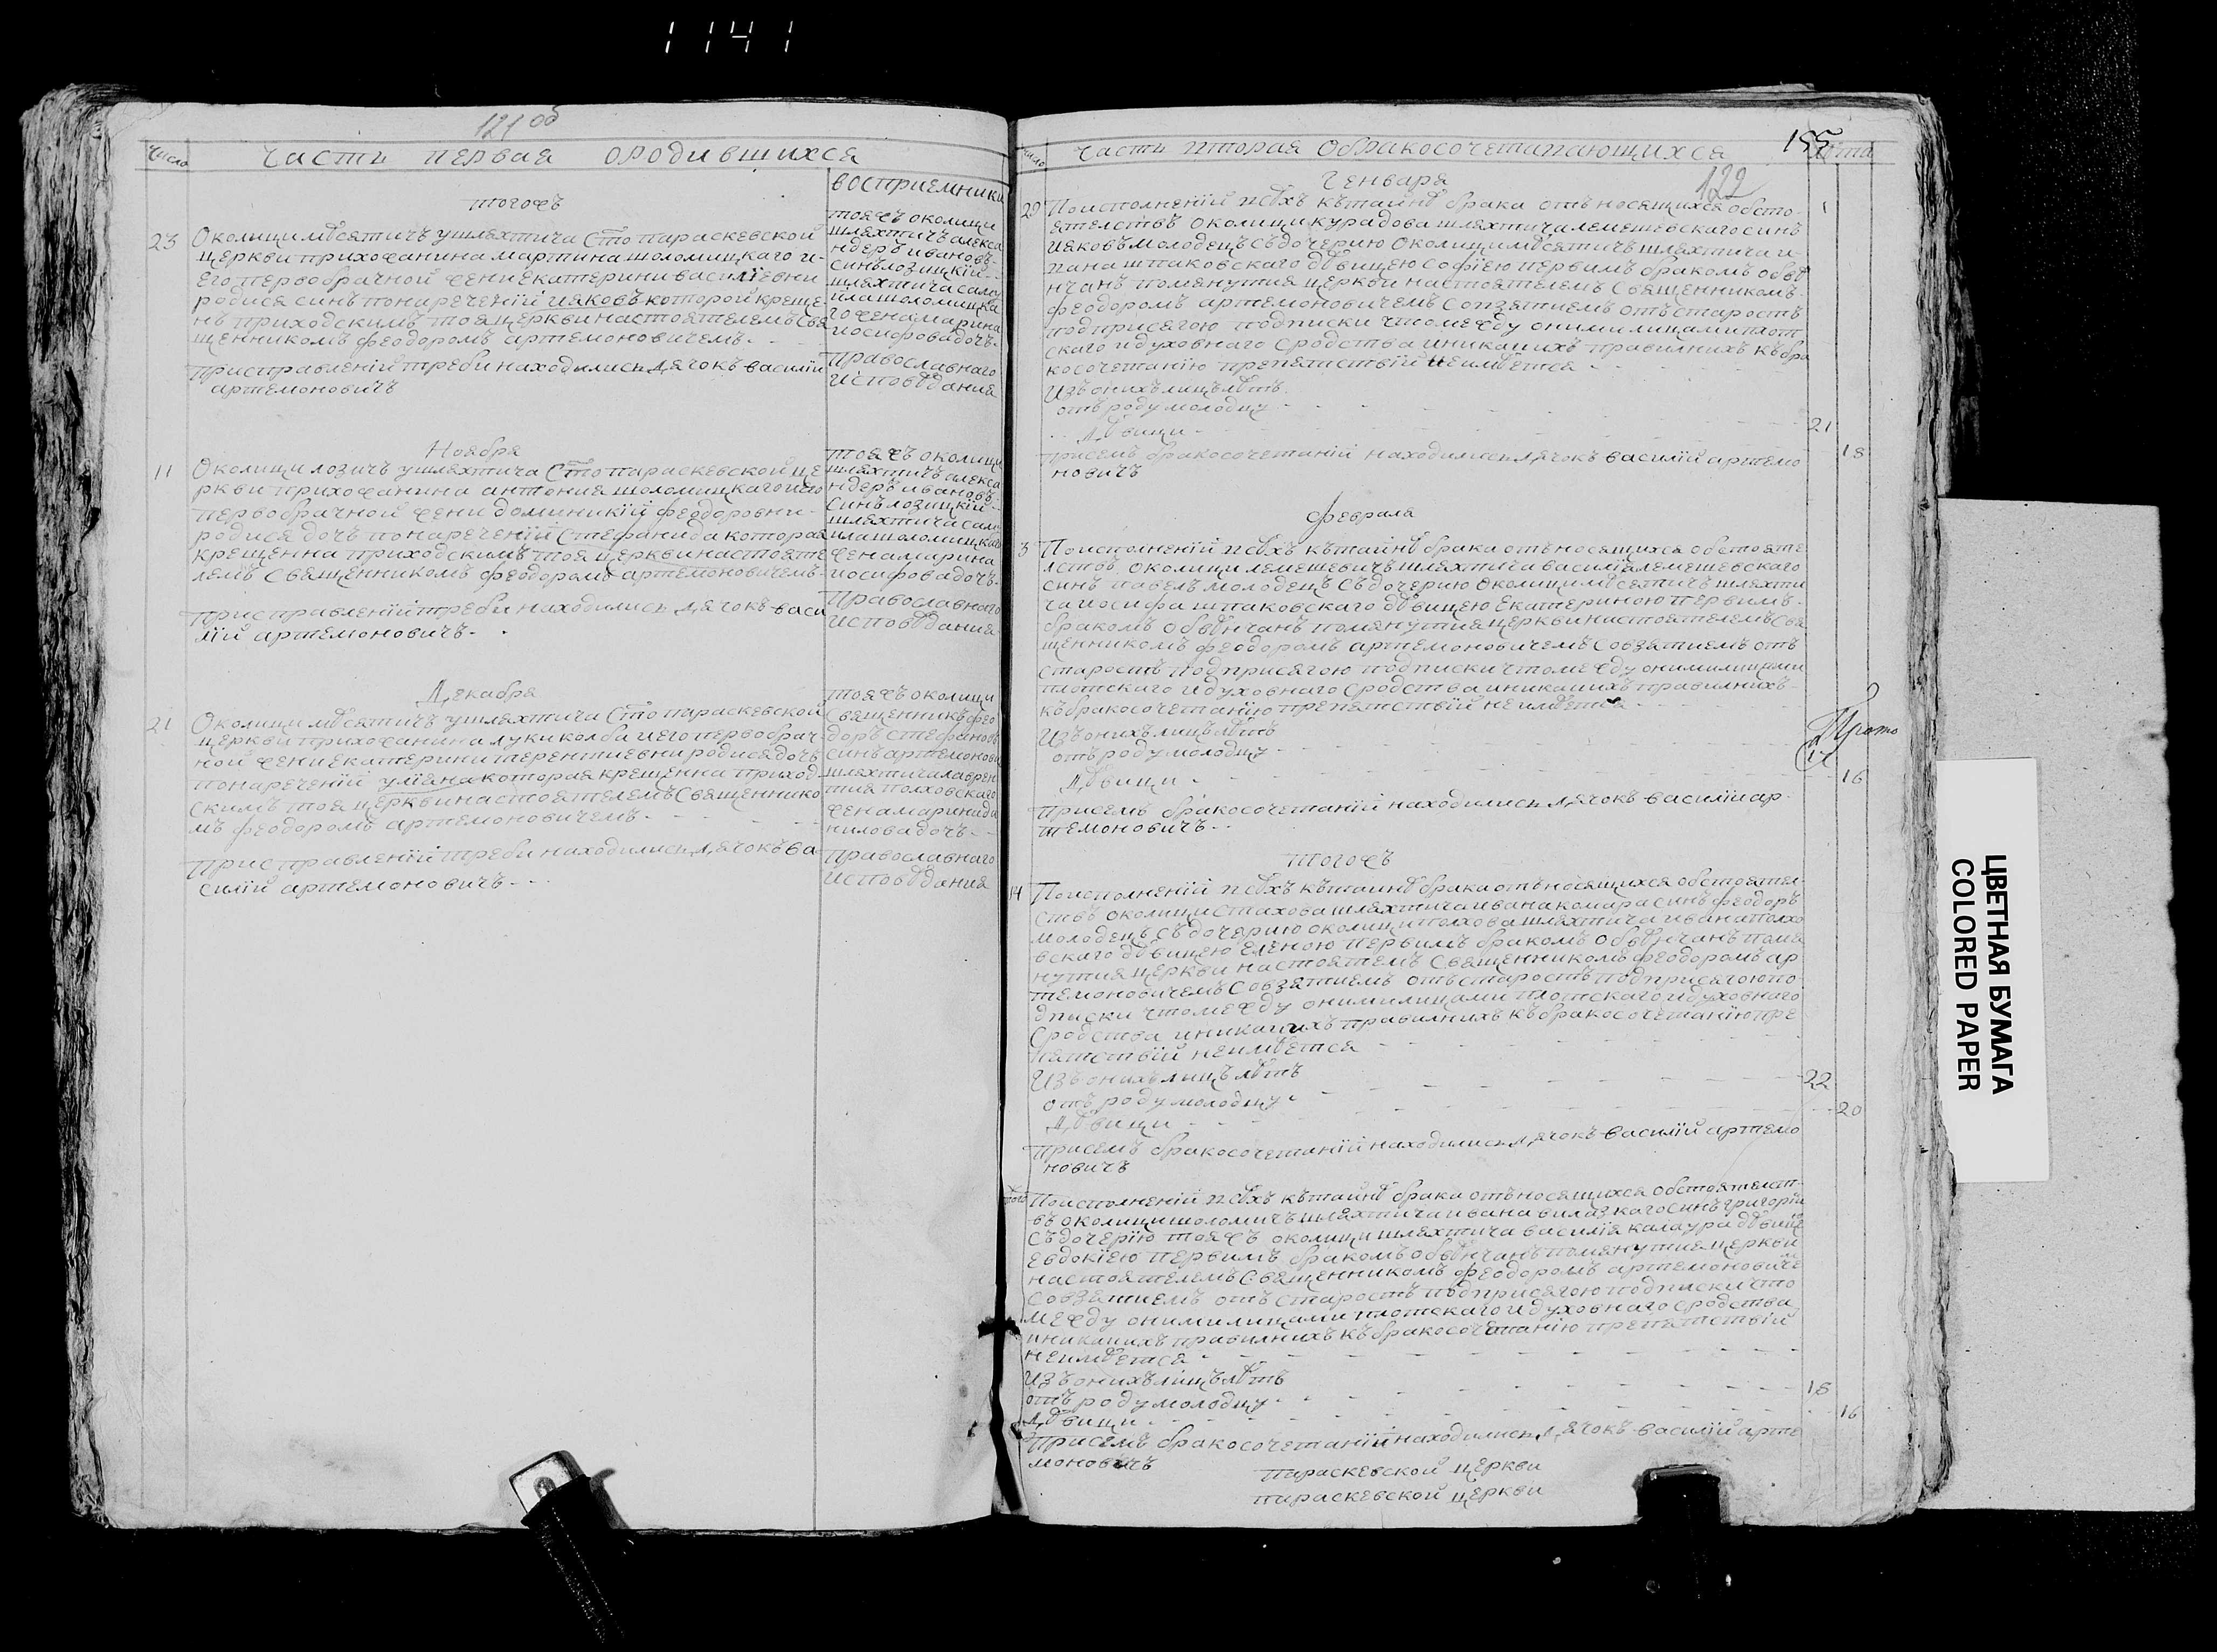 1141
121 об
Число
Часть первая ородившихся
восприемники
тогожъ
23
Околици мѣсятичъ ушляхтича Сто параскевской
церкви прихожанина мартина шоломицкаго и
Его первобрачной жени Екатерини василїевни
родися синъ понареченїй иаковъ которой креще
нъ приходскимъ тоя церкви настоятелемъ Свя
щенникомъ феодоромъ артемоновичемъ
присправленїй треби находились дячокъ василїй
артемоновичъ
тояжъ околици
шляхтичъ алекса
ндеръ ивановъ
синъ лозицкїй
шляхтича сам
ила шоломицка
го жена марина
иосифова дочъ
православнаго
исповѣдания
Ноября
11
Околици лозичъ ушляхтича Сто параскевской це
ркви прихожанина антония шоломицкаго иего
первобрачной жени доминикїй феодоровни
родися дочъ понареченїй Стефанида которая
крещенна приходскимъ тоя церкви настояте
лемъ Священникомъ феодоромъ артемоновичемъ
присправленїй треби находились дячокъ васи
лїй артемоновичъ
тояжъ околици
шляхтичъ алекса
ндеръ ивановъ
Синъ лозицкїй
шляхтича сам
ила шоломицкаго
жена марина
иосифова дочъ
православнаго
исповѣдания
Декабря
21
Околици мѣсятичъ ушляхтича Сто параскевской
церкви прихожанина луки колба иего первобрач
ной жени Екатерини терентиевни родися дочъ
понареченїй улїяна которая крещенна приход
скимъ тоя церкви настоятелемъ Священнико
мъ феодоромъ артемоновичемъ
присправленїй треби находились дячокъ ва
силїй артемоновичъ
тояжъ околици
Священникъ фео
доръ стефановъ
синъ артемонови
шляхтича лаврен
тия полховскаго
жена марина да
нилова дочъ
православнаго
исповѣдания
Число
Часть вторая Обракосочетавающихся
155
лѣта
122
Генваря
29
1
Поисполненїй всѣхъ къ тайнѣ брака отъносящихся обсто
ятелствъ околици курадова шляхтича лемешевскаго синъ
иаковъ молодецъ съдочерию Околици мѣсятичъ шляхтича и
вана шпаковскаго дѣвицею Софїею первимъ бракомъ обвѣ
нчанъ помянутия церкви настоятелемъ Священникомъ
феодоромъ артемоновичемъ Совзятиемъ отъ старостъ
подприсягою подписки что между оними лицами плот
скаго идуховнаго Сродства иникакихъ правилнихъ къбра
косочетанїю препятствїй неимѣется
Изъонихъ лицъ лѣтъ
отъ роду молодцу
21
Дѣвици
18
присемъ бракосочетанїй находились дячокъ василїй артемо
новичъ
февраля
3
Поисполненїй всѣхъ къ тайнѣ брака отъносящихся обстояте
лствъ околици лемешевичъ шляхтича василїя лемешевскаго
синъ павелъ молодецъ Съдочерию Околици мѣсятичъ шляхти
ча иосифа шпаковскаго дѣвицею Екатериною первимъ
бракомъ обвѣнчанъ помянутия церкви настоятелемъ Свя
щенникомъ феодоромъ артемоновичемъ Совзятиемъ отъ
старостъ подприсягою подписки что между оними лицами
плотскаго идуховнаго Сродства иникакихъ правилнихъ
къбракосочетанїю препятствїй неимѣется
Изъонихъ лицъ лѣтъ
отъ роду молодцу
Прото
Дѣвици
16
присемъ бракосочетанїй находились дячокъ василїй ар
темоновичъ
тогожъ
14
Поисполненїй всѣхъ къ тайнѣ брака отъносящихся обстоятел
ствъ околици Стахова шляхтича ивана комара синъ феодоръ
молодецъ Съдочерию околици полхова шляхтича ивана полхо
вскаго дѣвицею Еленою первимъ бракомъ обвѣнчанъ помя
нутия церкви настоятелемъ Священникомъ феодоромъ ар
темоновичемъ Совзятиемъ отъ старостъ подприсягою по
дписки что между оними лицами плотскаго идуховнаго
Сродства иникакихъ правилнихъ къбракосочетанїю пре
пятствїй неимѣется
Изъонихъ лицъ лѣтъ
22
отъ роду молодцу
20
Дѣвици
присемъ бракосочетанїй находились дячокъ василїй артемо
новичъ
Поисполненїй всѣхъ къ тайнѣ брака отъносящихся обстоятелст
въ околици шоломичъ шляхтича ивана вилазкаго синъ григорїй
Съдочерїю тояжъ околици шляхтича василїя калаура дѣвице
Евдокїею первимъ бракомъ обвѣнчанъ помянутиецеркви
настоятелемъ Священникомъ феодоромъ артемоновиче
Совзятиемъ отъ старостъ подприсягою подписки что
между оними лицами плотскаго идуховнаго сродства
иникакихъ правилнихъ къбракосочетанїю препятствїй
неимѣется
Изъонихъ лицъ лѣтъ
отъ роду молодцу
18
Дѣвици
16
присемъ бракосочетанїй находились дячокъ василїй арте
моновичъ
параскевской церкви
параскевской церкви
ЦВЕТНАЯ БУМАГА
COLORED PAPER